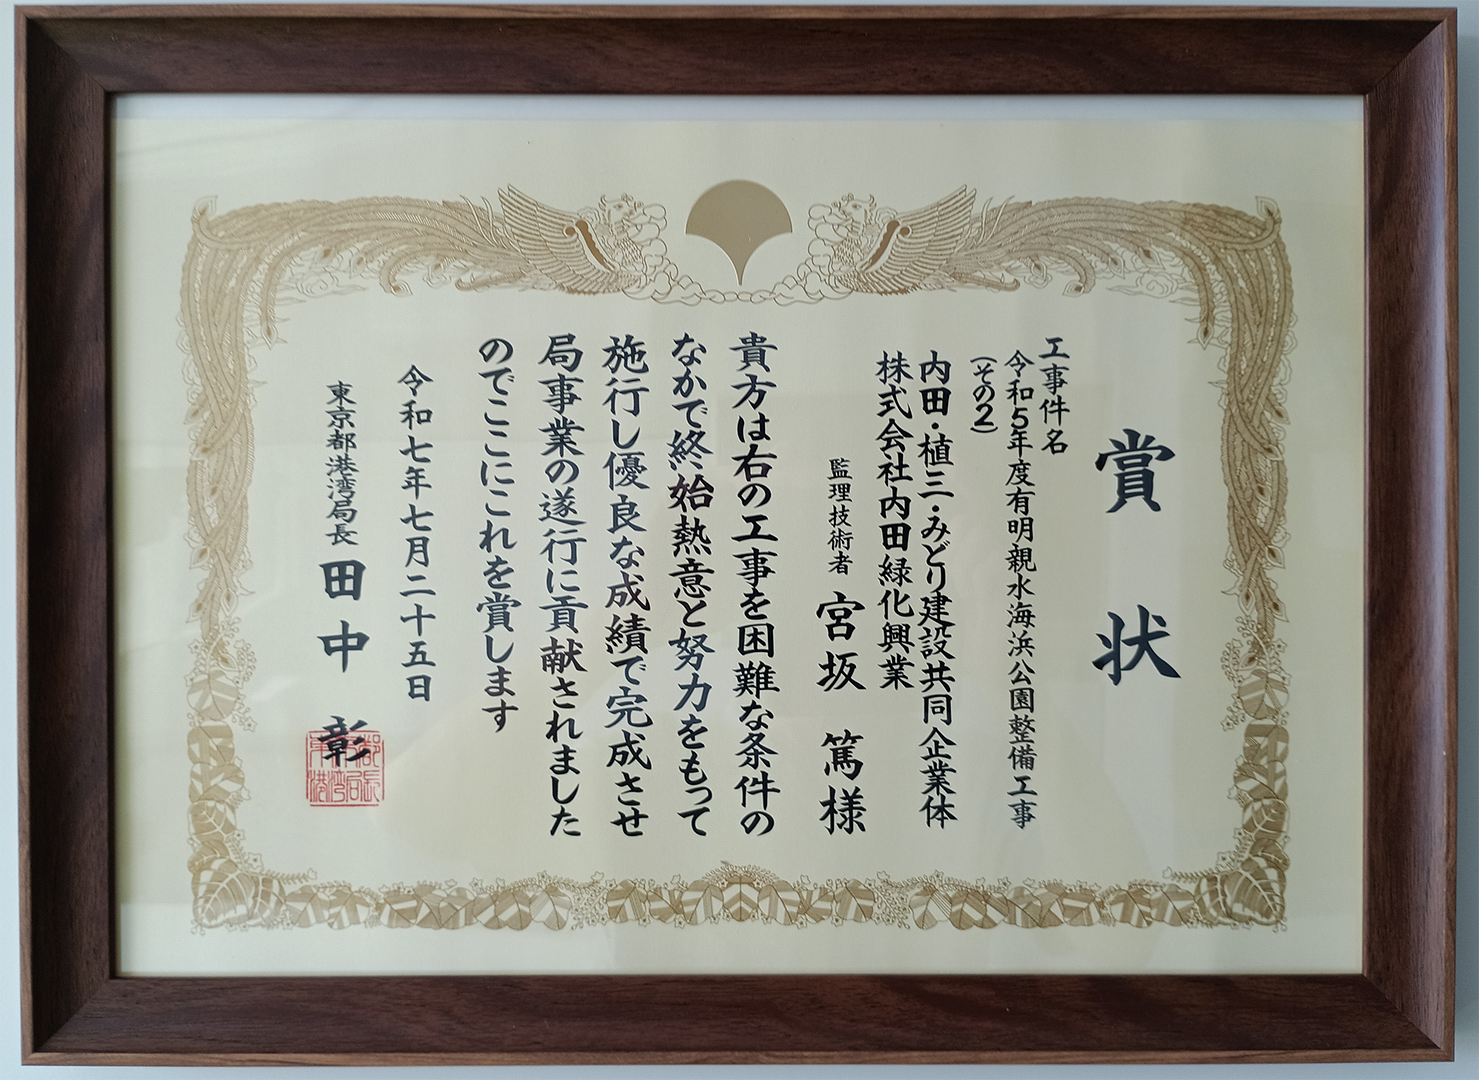 賞状
工事件名
令和5年度有明親水海浜公園整備工事
(その2)
内田・植三・みどり建設共同企業体
株式会社内田緑化興業
監理技術者 宮坂 篤様
貴方は右の工事を困難な条件の
なかで終始熱意と努力をもって
施行し優良な成績で完成させ
局事業の遂行に貢献されました
のでここにこれを賞します
令和七年七月二十五日
東京都港湾局長 田中 彰